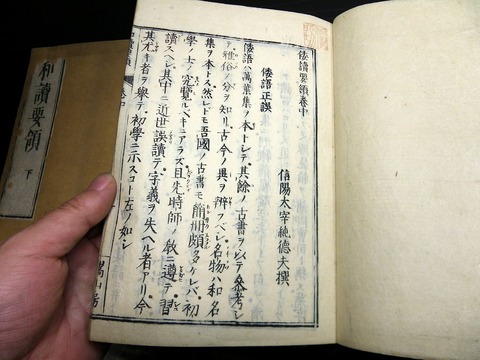 倭讀要領卷中
信陽太宰純德夫撰
倭語正誤
倭語ハ萬葉集ヲ本トシテ其餘ノ古書ヲ以テ參考シ
テ雅俗ノ分ヲ知リ古今ノ異ヲ辨フベシ名物ハ和名
集ヲ本トス然レドモ吾國ノ古書モ簡册頗多ケレバ初
學ノ士ノ究覽ルベキニアラズ且先時師ノ敎ニ遵テ習
讀スベシ其中ニ近世誤讀テ字義ヲ失ヘル者アリ今
其尤キ者ヲ擧テ初學ニ示スコト左ノ如シ
卷中
嵩山房
和讀要領 下